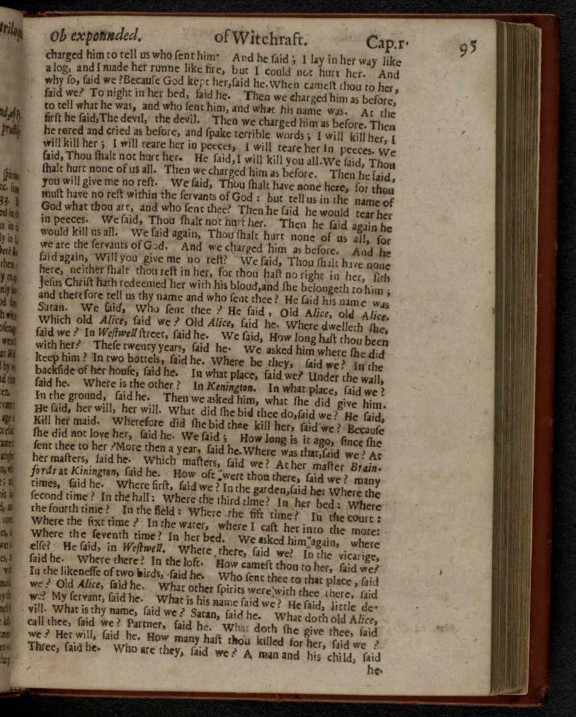 Ob expounded. of Witchraft. Cap.1. 95
charged him to tell us who ſent him. And he ſaid; I lay in her way like
a log, and I made her runne like fire, but I could not hurt her. And
why ſo, ſaid we? Becauſe God kept her, ſaid he. When cameſt thou to her,
ſaid we? To night in her bed, ſaid he. Then we charged him as before,
to tell what he was, and who ſent him, and what his name was. At the
firſt he ſaid, The devil, the devil. Then we charged him as before. Then
he rored and cried as before, and ſpake terrible words; I will kill her, I
will kill her; I will teare her in peeces, I will teare her in peeces. We
ſaid, Thou ſhalt not hurt her. He ſaid, I will kill you all. We ſaid, Thou
ſhalt hurt none of us all. Then we charged him as before. Then he ſaid,
you will give me no reſt. We ſaid, Thou ſhalt have none here, for thou
muſt have no reſt within the ſervants of God: but tell us in the name of
God what thou art, and who ſent thee? Then he ſaid he would tear her
in peeces. We ſaid, Thou ſhalt not hurt her. Then he ſaid again he
would kill us all. We ſaid again, Thou ſhalt hurt none of us all, for
we are the ſervants of God. And we charged him as before. And he
ſaid again, Will you give me no reſt? We ſaid, Thou ſhalt have none
here, neither ſhalt thou reſt in her, for thou haſt no right in her, ſith
Jeſus Chriſt hath redeemed her with his bloud, and ſhe belongeth to him;
and therefore tell us thy name and who ſent thee? He ſaid his name was
Satan. We ſaid, Who ſent thee? He ſaid, Old Alice, old Alice.
Which old Alice, ſaid we? Old Alice, ſaid he. Where dwelleth ſhe,
ſaid we? In Weſtwell ſtreet, ſaid he. We ſaid, How long haſt thou been
with her? Theſe twenty years, ſaid he. We asked him where ſhe did
keep him? In two bottels, ſaid he. Where be they, ſaid we? In the
backſide of her houſe, ſaid he. In what place, ſaid we? Under the wall,
ſaid he. Where is the other? In Kenington. In what place, ſaid we?
In the ground, ſaid he. Then we asked him, what ſhe did give him.
He ſaid, her will, her will. What did ſhe bid thee do, ſaid we? He ſaid,
Kill her maid. Wherefore did ſhe bid thee kill her, ſaid we? Becauſe
ſhe did not love her, ſaid he. We ſaid; How long is it ago, ſince ſhe
ſent thee to her? More then a year, ſaid he. Where was that, ſaid we? At
her maſters, ſaid he. Which maſters, ſaid we? At her maſter Brain-
fords at Kinington, ſaid he. How oft wert thou there, ſaid we? many
times, ſaid he. Where firſt, ſaid we? In the garden, ſaid he: Where the
ſecond time? In the hall: Where the third time? In her bed: Where
the fourth time? In the field: Where the fift time? In the court:
Where the ſixt time? In the water, where I caſt her into the mote:
Where the ſeventh time? In her bed. We asked him again, where
elſe? He ſaid, in Weſtwell. Where there, ſaid we? In the vicarige,
ſaid he. Where there? In the loft. How cameſt thou to her, ſaid we?
In the likeneſſe of two birds, ſaid he. Who ſent thee to that place, ſaid
we? Old Alice, ſaid he. What other ſpirits were with thee there, ſaid
we? My ſervant, ſaid he. What is his name ſaid we? He ſaid, little de-
vill. What is thy name, ſaid we? Satan, ſaid he. What doth old Alice,
call thee, ſaid we? Partner, ſaid he. What doth ſhe give thee, ſaid
we? Her will, ſaid he. How many haſt thou killed for her, ſaid we?
Three, ſaid he. Who are they, ſaid we? A man and his child, ſaid
he.